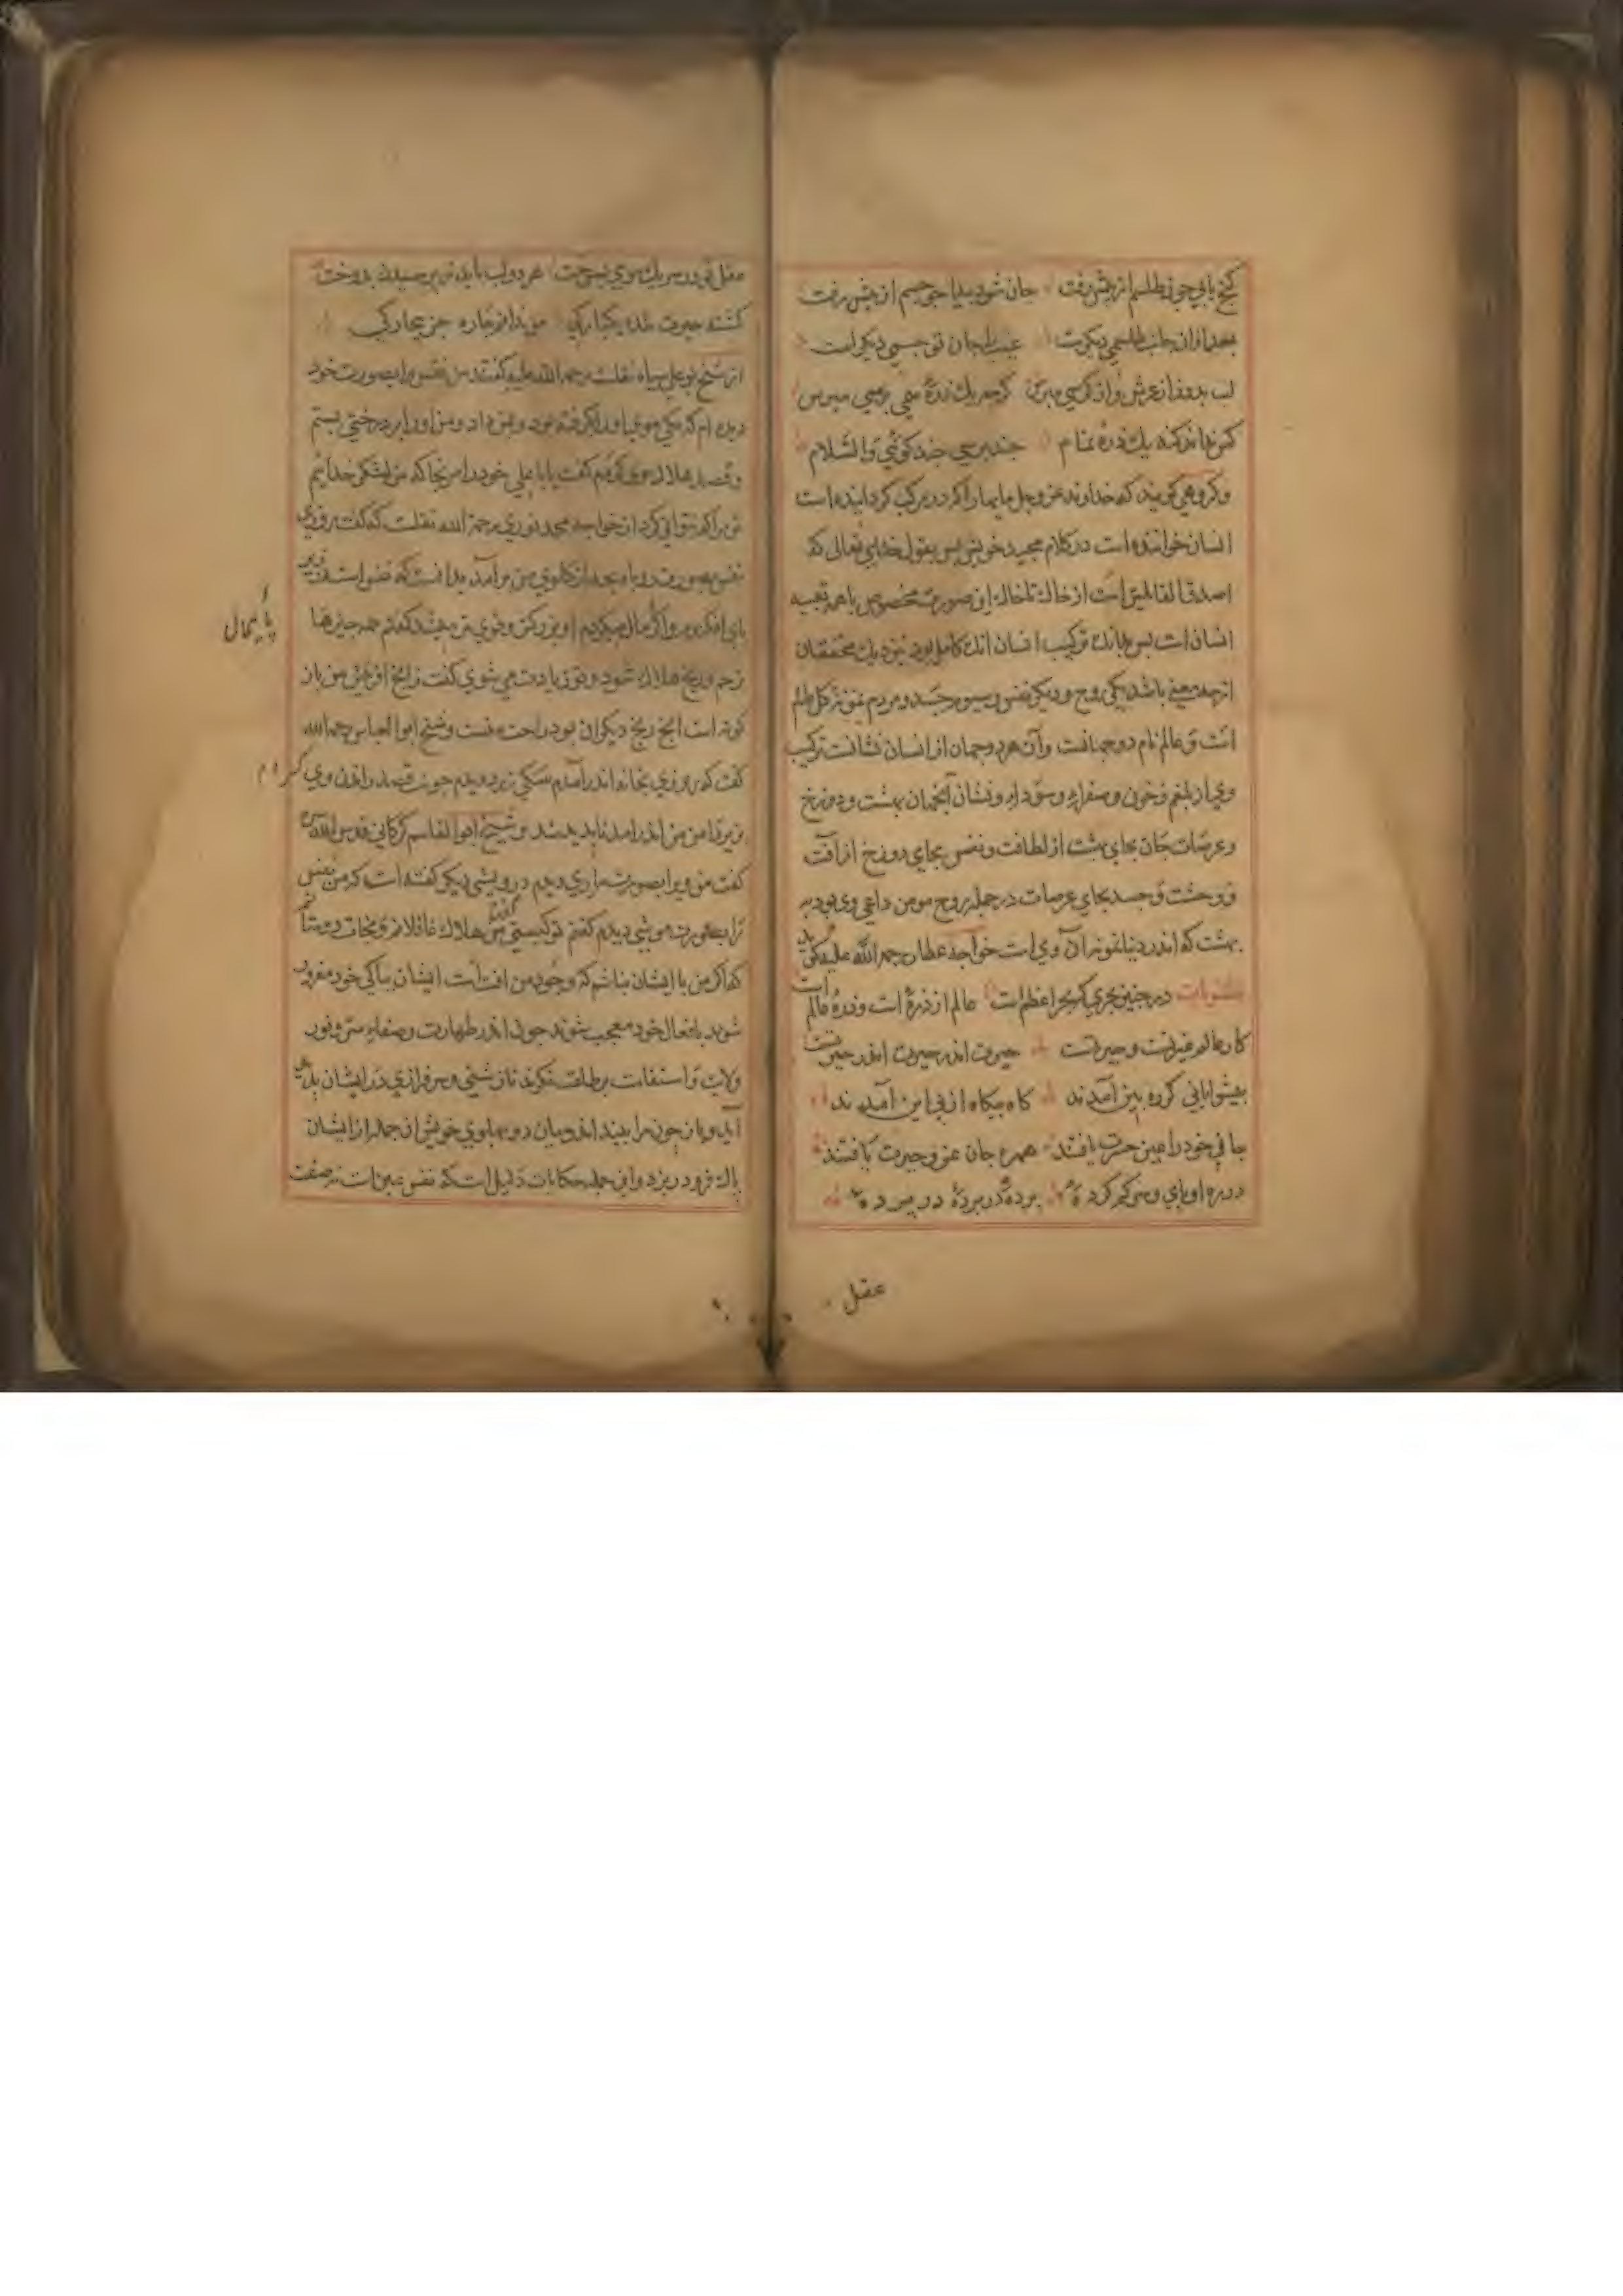 گنج یابی چون طلسم از پیش رفت جان شود پیدا چو جسم از پیش رفت
بعد ازان جانت طلسمی دیکرست غیب را جان تو جسمی دیکر است
لب بدوز از عرش و از کرسی مپرس کرچه یك ذره می پرسی مپرس
کس نداند کنه یك ذره تمام چند پرسی چند کوئی والسلام
وکروهی کویند که خداوند عز وجل مایهارا که در مرکب کردانیده است
انسان خوانده است در کلام مجید خویش پس بقول خدای تعالی که
اصدق القائلین است از خاك تا خاك این صورت مخصوص با همه تعبیه
انسان است پس بدانك ترکیب انسان انك کامل بود نزدیك محققان
از سه معنی باشد یکی روح و دیکر نفس و سیوم جسد و مردم نمونه کل عالم
است و عالم نام دو جهانست وآن هر دو جهان از انسان نشانست ترکیب
وی از بلغم و خون و صفراء و سوداء و نشان آنجهان بهشت و دوزخ
و عرصات جان بجای بهشت از لطافت و نفس بجای دوزخ از آفت
و وحشت و جسد بجای عرصات در جمله روح مومن داعی وی بود به
بهشت که اندر دنیا نمونه آن وی است خواجه عطار رحمه الله علیه کوید
مثنویات در چنین بحری که بحر اعظم است عالم از ذره است و ذره عالم است
کار عالم عبرتست و حیرتست حیرت اندر حیرت اندر حیرتست
پیشوایانی که ره بین آمدند کاه بیکاه از پی این آمدند
جان خود را عین حسرت یافتند همره جان عجز و حیرت یافتند
در ره او پای و سر کم کرده پرده در پرده در پرده
عقل
عقل تو در سر یك موی بسوخت هر دو لب باید ز پرسیدن بدوخت
کشته حیرت شدم یکبارکی می ندانم چاره جز بیچارکی
از شیخ بو علی سیاه نقلست رحمه الله علیه کفتند من نفس را بصورت خود
دیده ام که یکی موی او را کرفته بود و بمن داد و من او را بر درختی بستم
و قصد هلاك وی کردم کفت یا با علی خود را مرنجان که من لشکر خدایم
تو مرا کم نتوانی کرد از خواجه محمد نوری رحمة الله نقلست که کفت روزی
نفس بصورت روباه بچه از کلوی من برآمد بدانستم که نفس است در زیر
پای افکندم و او را پامال میکردم او بزرکتر و قوی تر میشد کفتم همه چیزها
بزخم و رنج هلاك شود و تو زیادت می شوی کفت زانچ آفرینش من باز
کونه است انچ رنج دیکران بود راحت منست و شیخ ابو العباس رحمه الله
کفت که روزی بخانه اندر آمدم سکی زرد دیدم چون قصد راندن وی کردم
بزیر دامن من اندر آمد ناپدید شد و شیخ ابو القاسم کرکانی قدس الله
کفت من ویرا بصورت ماری دیدم درویشی دیکر کفته است که من نفس
را بصورت موشی دیدم کفتم تو کیستی کفت من هلاك غافلانم و نجات دوستان
که اکر من با ایشان نباشم که وجود من آفت است ایشان بپاکی خود مغرور
شوند بافعال خود معجب شوند چون اندر طهارت و صفاء سر و نور
ولایت و استقامت بر طاعت نکرند ناز منشی و سرفرازی در ایشان پدید
آید و باز چون مرا بیند اندر میان دو پهلوی خویش آن جمله از ایشان
پاك فرود ریزد و این جمله حکایات دلیل است که نفس عین است نه صفت
پایمال